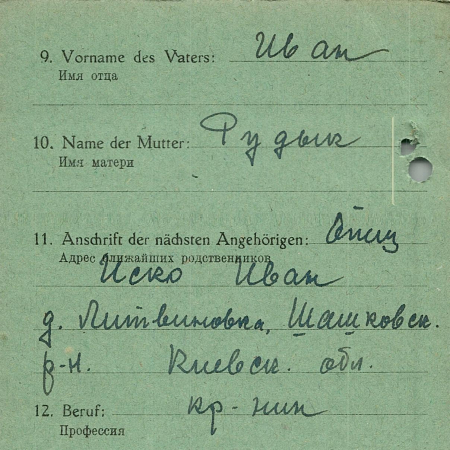 9. Vorname des Vaters: Иван
Имя отца
10. Name der Mutter: Рудык
Имя матери
11. Anschrift der nächsten Angehörigen: Отец
Адрес ближайших родственников
Иско Иван
д. Литвиновка, Шашковск.
р-н. Киевск. обл.
12. Beruf: кр-нин
Профессия